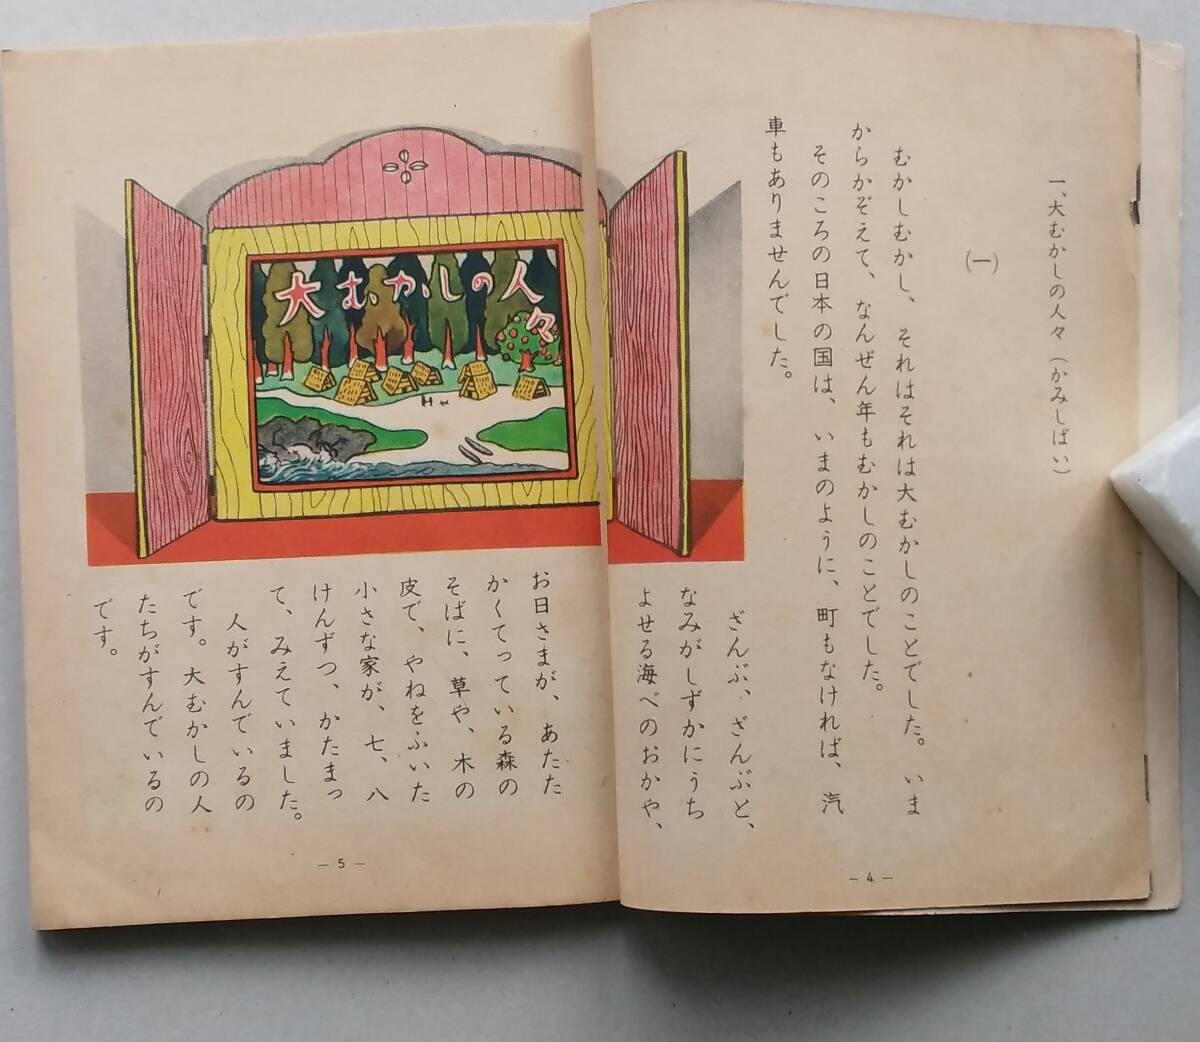 一、大むかしの人々(かみしばい)
(一)
むかしむかし、それはそれは大むかしのことでした。いま
からかぞえて、なんぜん年もむかしのことでした。
そのころの日本の国は、いまのように、町もなければ、汽
車もありませんでした。
ざんぶ、ざんぶと、
なみがしずかにうち
よせる海べのおかや、
— 4 —
大むかしの人々
お日さまが、あたた
かくてっている森の
そばに、草や、木の
皮で、やねをふいた
小さな家が、七、八
けんずつ、かたまっ
て、みえていました。
人がすんでいるの
です。大むかしの人
たちがすんでいるの
です。
— 5 —